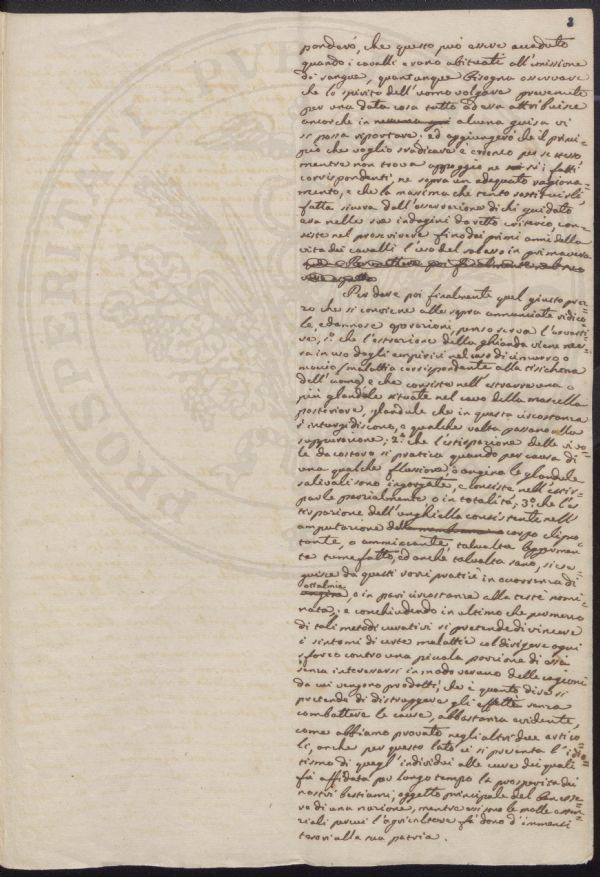 3
ponderò, che questo può essere accaduto
quando i cavalli erano abituati all'emissione
di sangue, quantunque bisogna osservare
che lo spirito dell'uomo volgare prevenuto
per una data cosa tutto ad essa attribuisce
ancorche in alcuna guisa vi
si possa riportare: ed aggiungerò che il princi=
pio che voglio sradicare è erroneo per se stesso
mentre non trova appoggio ne si i fatti
corrispondenti, ne sopra un adeguato ragiona=
mento, e che la massima che tento sostituirli
fatta sicura dall'osservazione di chi guidato
era nelle sue indagini da retto criterio, con=
siste nel proscrivere fino dai primi anni della
vita dei cavalli l'uso del salasso in primavera
Per dare poi finalmente quel giusto prez=
zo che si conviene alle sopra annunciate ridico=
le, e dannose operazioni, penso serva l'avverti=
re, 1.° che l'estrazione della ghianda viene mes=
sa in uso dagli empirici nel caso di cimurro, o
morvo (malattia corrispondente alla tisichezza
dell'uomo) e che consiste nell'estrarre una o
più glandole situate nel cavo della mascella
posteriore, glandule che in questa circostanza
s'inturgidiscono, e qualche volta passano alla
suppurazione; 2.° che l'estirpazione delle vivo=
le da costoro si pratica quando per causa di
una qualche flussione, o angina le glandule
salivali sono ingorgate, e consiste nell'estir=
parle parzialmente o in totalità; 3.° che l'es
tirpazione dell'unghiella consistente nell'
amputazione del corpo clipo=
tante, o ammiccante, talvolta leggermen=
te tumefatto, ed anche talvolta sano, si ese=
guisce da questi sovri pratici in occorrenza di
ottalmie, o in pari circostanza alle testè nomi=
nata; e conchiudendo in ultimo che per mezzo
di tali metodi curativi si pretende di vincere
i sintomi di certe malattie col dirigere ogni
sforzo contro una piccola porzione di essi
senza interessarsi in modo veruno delle cagioni
da cui vengono prodotti, che è quanto dire si
pretende di distruggere gli effetti senza
combattere le cause, abbastanza evidente,
come abbiamo provato negli altri due artico=
li, anche per questo lato ci si presenta l'idio=
tismo di quegl'individui alle cure dei quali
fù affidata per lungo tempo la prosperità dei
nostri bestiami, oggetto principale del benesse=
re di una nazione, mentre essi sono le molle essen=
ziali per cui l'agricoltura fà dono d'immensi
tesori alla sua patria.